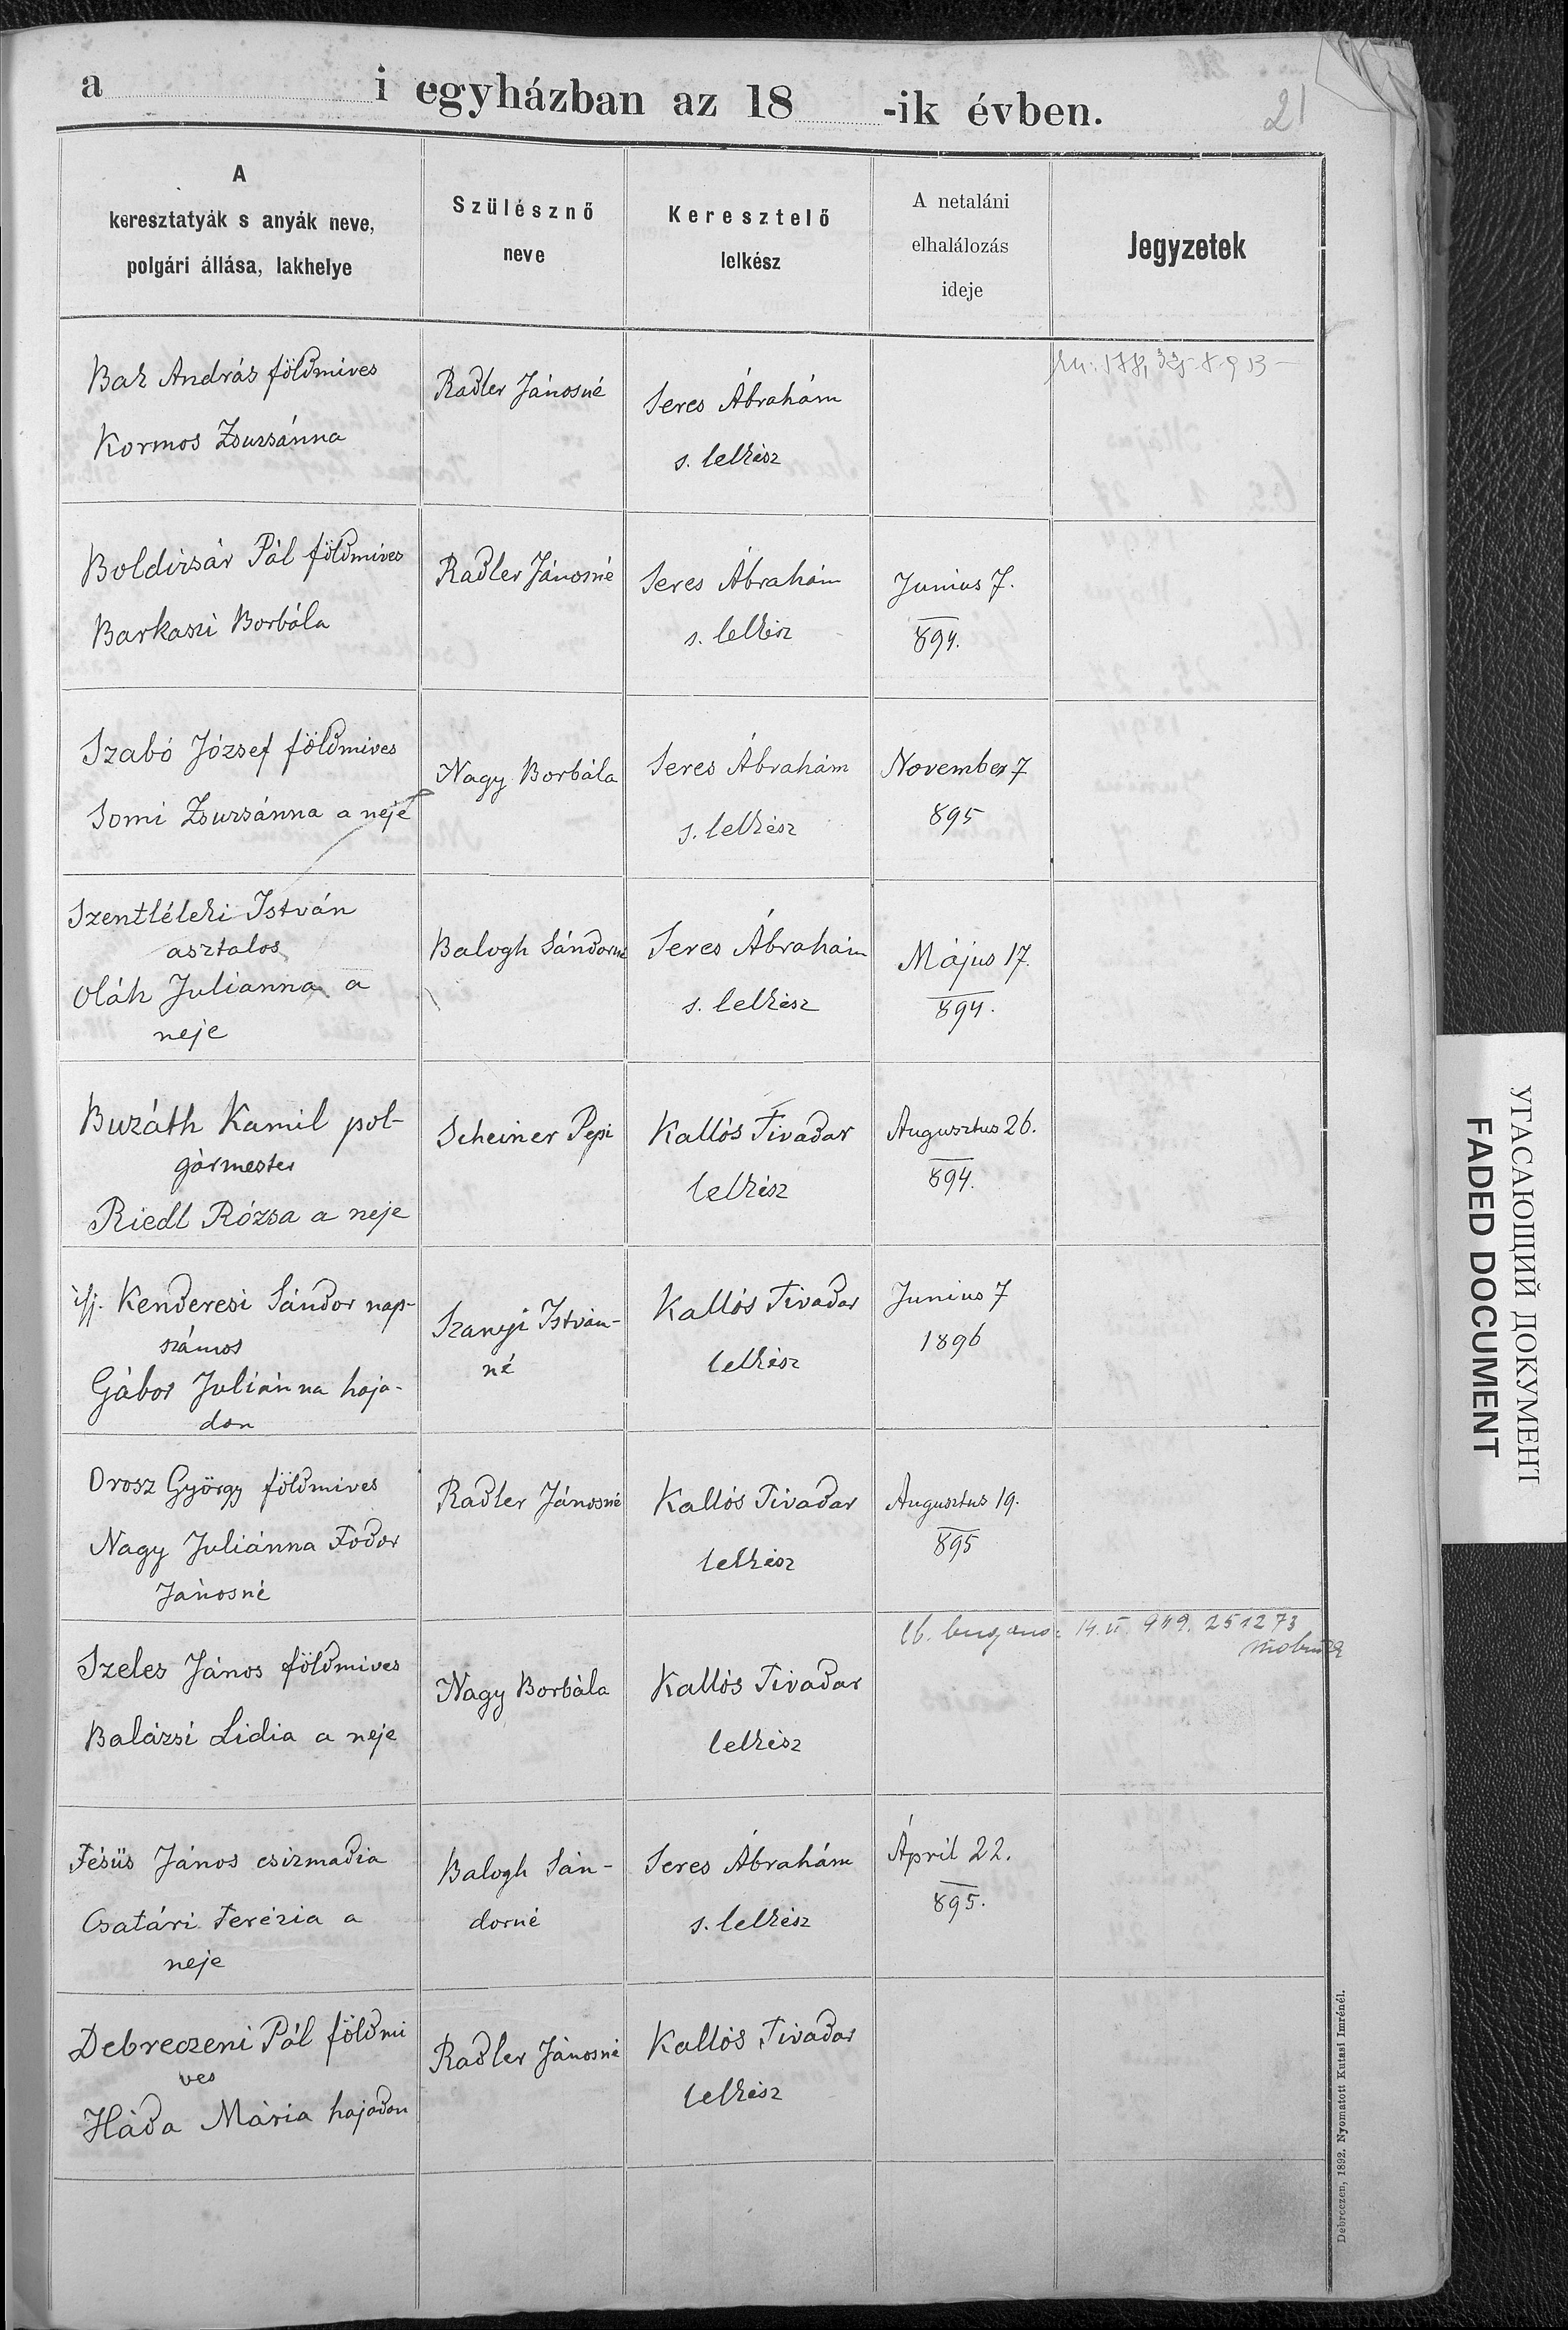 a i egyházban az 18 -ik évben.
21
A
keresztatyák s anyák neve,
polgári állása, lakhelye
Szülésznő
neve
Keresztelő
lelkész
A netaláni
elhalálozás
ideje
Jegyzetek
Bak András földmives
Kormos Zsuzsánna
Radler Jánosné
Seres Ábrahám
s. lelkész
Boldizsár Pál földmives
Barkaszi Borbála
Radler Jánosné
Seres Ábrahám
s. lelkész
Junius 7.
894.
Szabó József földmives
Somi Zsuzsánna a neje
Nagy Borbála
Seres Ábrahám
s. lelkész
November 7
895
Szentléleki István
asztalos
Oláh Julianna a
neje
Balogh Sándorné
Seres Ábrahám
s. lelkész
Május 17.
894.
Buzáth Kamil pol-
gármester
Riedl Rózsa a neje
Scheiner Pepi
Kallós Tivadar
lelkész
Augusztus 26.
894.
ifj. Kenderesi Sándor nap-
számos
Gábor Juliánna haja-
don
Szanyi István-
né
Kallós Tivadar
lelkész
Junius 7
1896
Orosz György földmives
Nagy Juliánna Fodor
Jánosné
Radler Jánosné
Kallós Tivadar
lelkész
Augusztus 19.
895
Szeles János földmives
Balázsi Lidia a neje
Nagy Borbála
Kallós Tivadar
lelkész
14. II. 949. 251273
Fésüs János csizmadia
Csatári Terézia a
neje
Balogh Sán-
dorné
Seres Ábrahám
s. lelkész
Ápril 22.
895.
Debreczeni Pál földmi
ves
Háda Mária hajadon
Radler Jánosné
Kallós Tivadar
lelkész
Debreczen, 1892. Nyomatott Kutasi Imrénél.
УГАСАЮЩИЙ ДОКУМЕНТ
FADED DOCUMENT